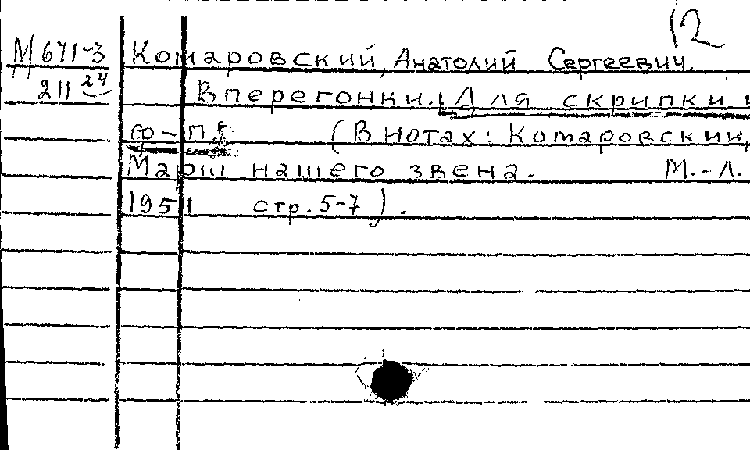 12
М 671-3 Комаровский, Анатолий Сергеевич.
211 24 Вперегонки. [Для скрипки и
ф-п.]. (В нотах: Комаровский,
Марш нашего звена. М.-Л.
1951 стр. 5-7).